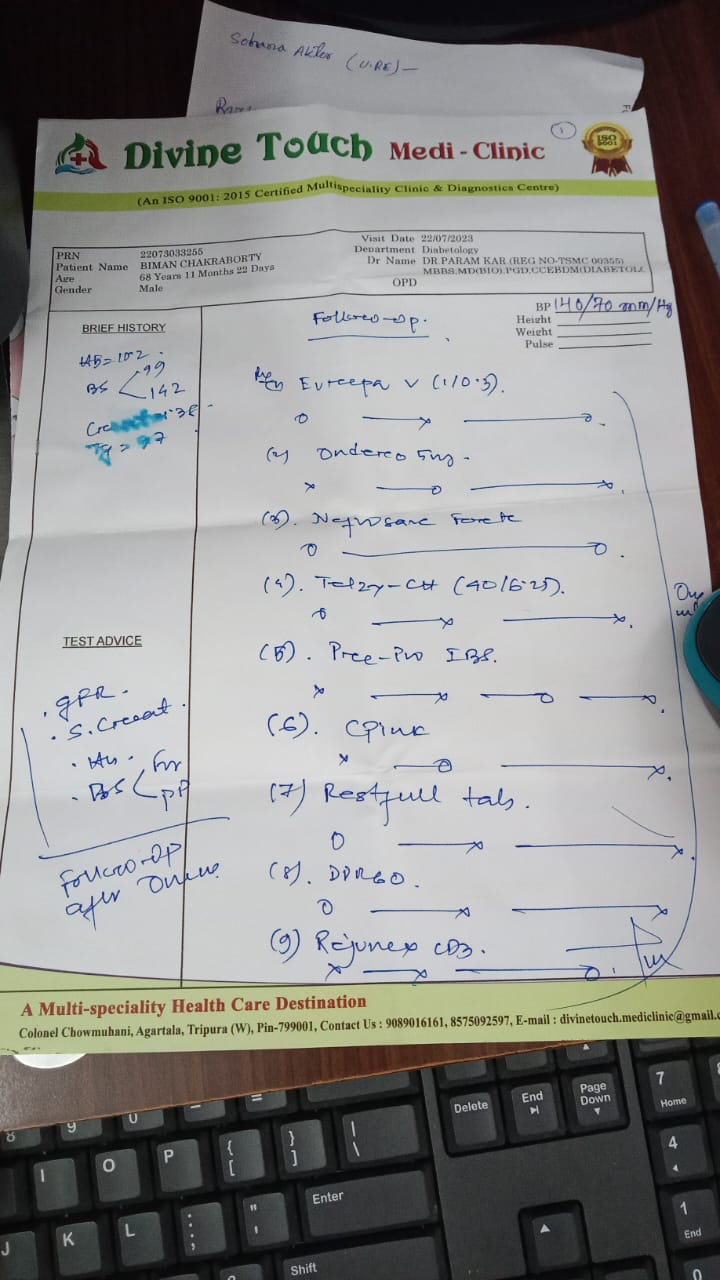 Sohana Akter (U.RE) —
1
Divine Touch Medi - Clinic
ISO
9001
(An ISO 9001: 2015 Certified Multispeciality Clinic & Diagnostics Centre)
PRN 22073033255
Patient Name BIMAN CHAKRABORTY
Age 68 Years 11 Months 22 Days
Gender Male
Visit Date 22/07/2023
Department Diabetology
Dr Name DR.PARAM KAR (REG NO-TSMC 00355)
MBBS,MD(BIO),PGD,CCEBDM(DIABETOL
OPD
BP 140/70 mm/Hg
Height
Weight
Pulse
BRIEF HISTORY
Hb = 10.2
BS 99
142
Tg = 97
Follow-up.
V (1/0.3).
(2) 5mg
(3). Forte
(4). Telzy-CH (40/6.25).
(5). Pree-Pro IBS.
(6). CPink
(7) Restfull tab.
(8). DPR60.
(9) Rejunex CD3.
TEST ADVICE
S. Creat.
BS PP
Follow-up
after
A Multi-speciality Health Care Destination
Colonel Chowmuhani, Agartala, Tripura (W), Pin-799001, Contact Us : 9089016161, 8575092597, E-mail : divinetouch.mediclinic@gmail.c
Delete End Page Down 7 Home
I O P { [ } ] | \ 4
Enter
J K L : ; " ' 1 End
Shift 0